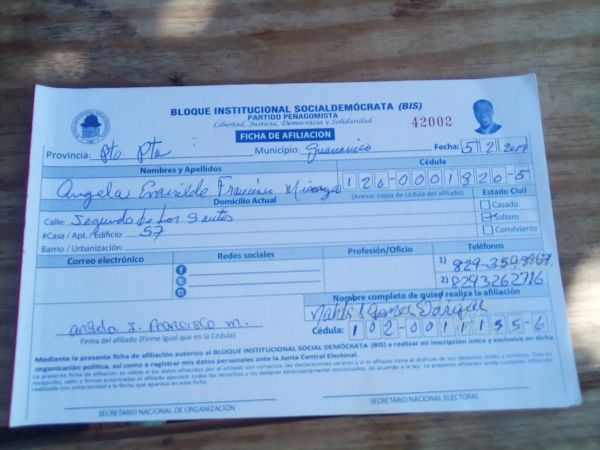 BLOQUE INSTITUCIONAL SOCIALDEMÓCRATA (BIS)
PARTIDO PEÑAGOMISTA
Libertad, Justicia, Democracia y Solidaridad
FICHA DE AFILIACION
42002
Provincia: Pto Pta Municipio: Guananico Fecha: 5/2/
Nombres y Apellidos Cédula
Angela Francisco
120-0001826-5
(Anexar copia de cédula del afiliado)
Domicilio Actual Estado Civil
Calle: Segundo de Los
#Casa / Apt. / Edificio: 57
Barrio / Urbanización:
Casado
Soltero
Conviviente
Correo electrónico Redes sociales Profesión/Oficio Teléfonos
1) 829-350-9867
2) 8293262716
Nombre completo de quien realiza la afiliación
angela Francisco m.
Firma del afiliado (Firme igual que en la Cédula)
Cédula: 102-0011155-6
Mediante la presente ficha de afiliación autorizo al BLOQUE INSTITUCIONAL SOCIALDEMÓCRATA (BIS) a realizar mi inscripción única y exclusiva en dicha
organización política, así como a registrar mis datos personales ante la Junta Central Electoral.
SECRETARIO NACIONAL DE ORGANIZACIÓN
SECRETARIO NACIONAL ELECTORAL